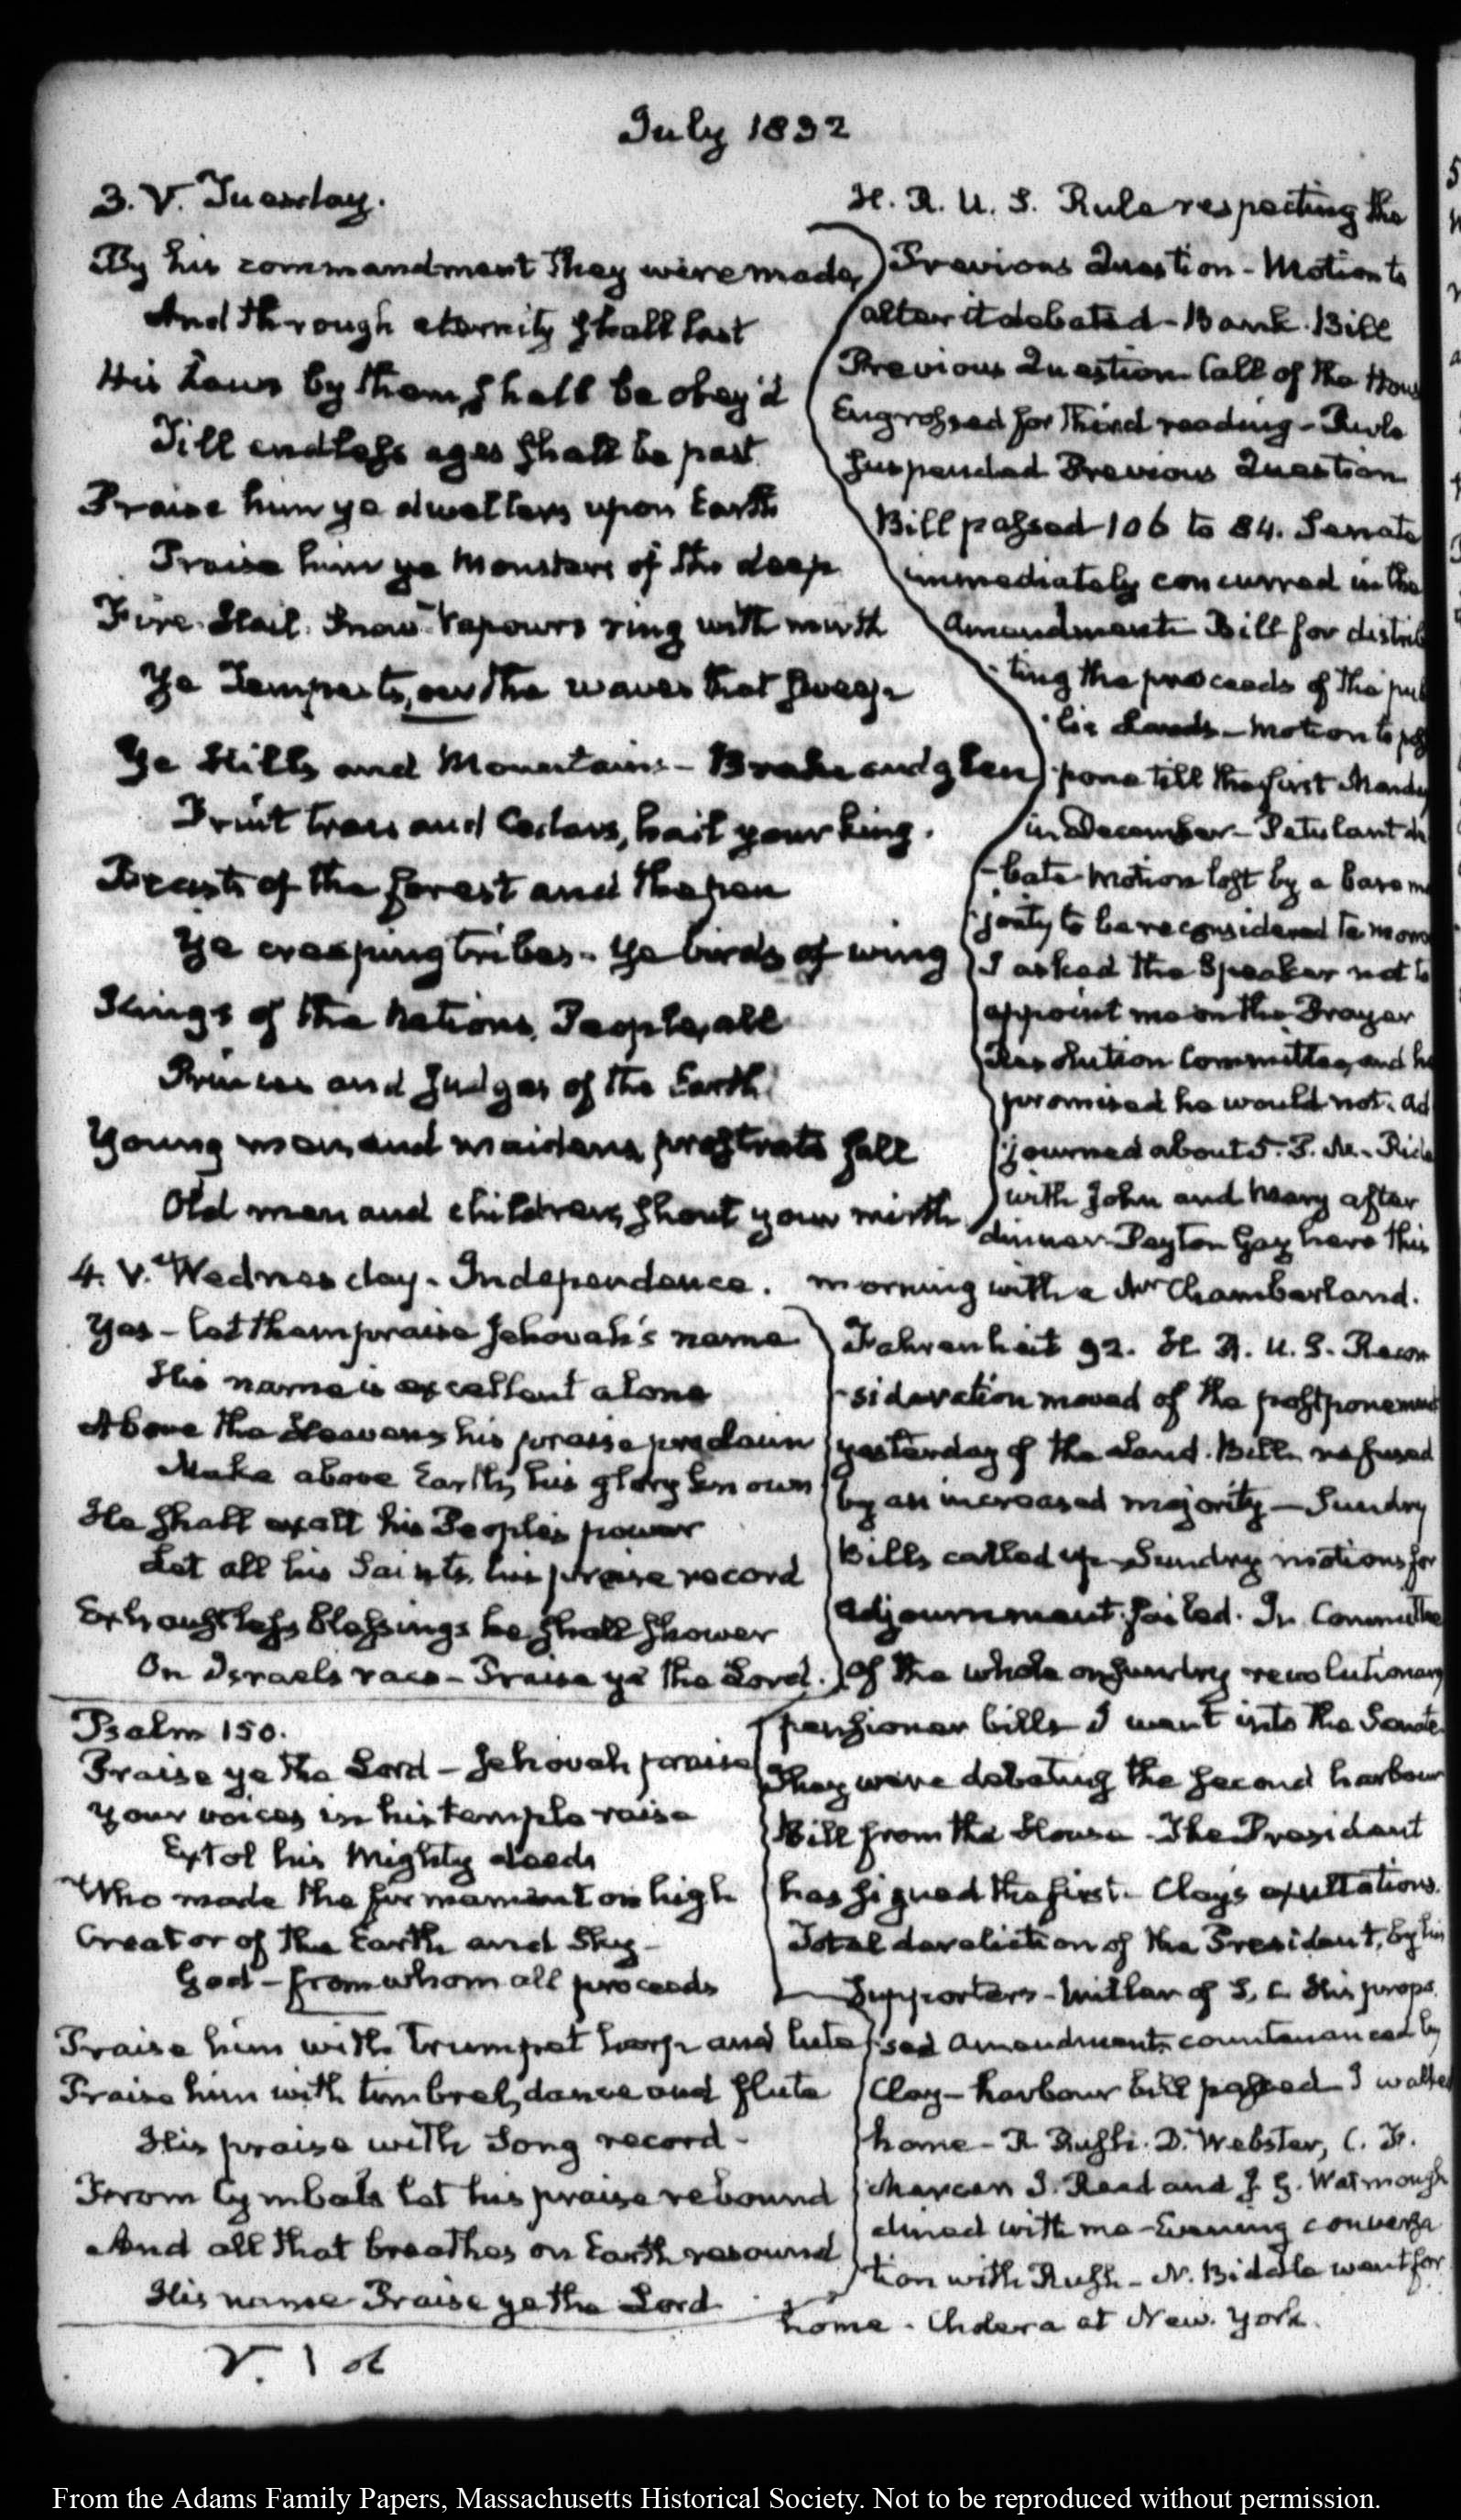 July 1832
3. V. Tuesday.
By his commandment they were made,
And through eternity shall last
His Laws by them, shall be obey'd
Till endless ages shall be past.
Praise him ye dwellers upon Earth
Praise him ye Monsters of the deep
Fire. Hail. Snow. Vapours ring with mirth
Ye Tempests, our the waves that sweep
Ye Hills and Mountains - Brake and glen
Fruit trees and Cedars, hail your king.
Beasts of the forest and the pen
Ye creeping tribes - Ye birds of wing
Kings of the Nations, People, all
Princes and Judges of the Earth
Young men and maidens, prostrate fall
Old men and children, shout your mirth
H. R. U. S. Rule respecting the
Previous Question - Motion to
alter it debated - Bank Bill
Previous Question Call of the Hous
Engrossed for third reading - Rule
suspended Previous Question
Bill passed 106 to 84. Senate
immediately concurred in the
Amendments Bill for distrib
ting the proceeds of the pub
lic Lands - Motion to
pone till the first Monday
in December - Petulant de
-bate Motion lost by a bare ma
jority to be reconsidered to morro
I asked the Speaker not to
appoint me on the Prayer
Resolution Committee, and he
promised he would not. Ad
journed about 5. P. M. Ride
with John and Mary after
dinner. Payton Gay here this
morning with a Mr Chamberland.
4. V. Wednesday. Independence.
Yes - let them praise Jehovah's name
His name is excellent alone
Above the Heavens his praise proclaim
Make above Earth, his glory known
He shall exalt his People's power
Let all his Saints, his praise record
Exhaustless Blessings he shall shower
On Israels race - Praise ye the Lord.
Psalm 150.
Praise ye the Lord - Jehovah praise
Your voices in his temple raise
Extol his Mighty deeds
Who made the firmament on high
Creator of the Earth and Sky -
God - from whom all proceeds
Praise him with trumpet harp and lute
Praise him with timbrel, dance and flute
His praise with Song record -
From Cymbals let his praise rebound
And all that breathes on Earth resound
His name Praise ye the Lord
Fahrenheit 92. H. R. U. S. Recon
-sideration moved of the postponement
yesterday of the Land. Bill. refused
by an increased majority - Sundry
Bills called up - Sundry motions for
adjournment failed. In Committee
of the whole on sundry revolutionary
pensioner bills I went into the Senate.
They were debating the second harbour
Bill from the House - The President
has signed the first - Clay's exultations.
Total dereliction of the President, by his
supporters - Miller of S. C. His propo
sed amendments countenanced by
Clay - harbour bill passed I walked
home - R Rush. D. Webster, C. F.
Mercer J. Reed and J. G. Watmough
dined with me - Evening conversa
tion with Rush - N. Biddle went for
home. Cholera at New York.
From the Adams Family Papers, Massachusetts Historical Society. Not to be reproduced without permission.